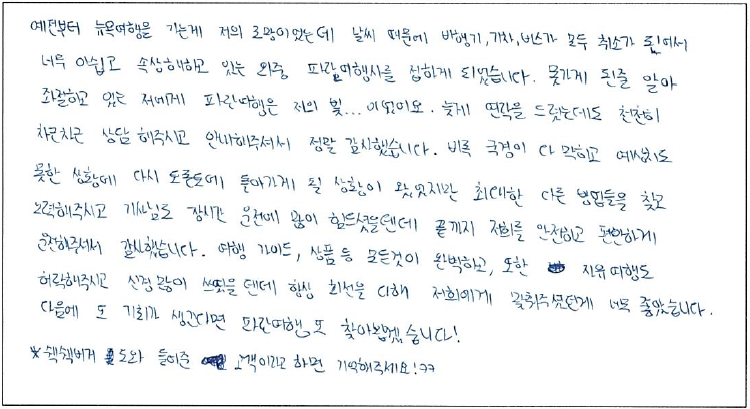 예전부터 뉴욕여행을 가는게 저의 로망이었는데 날씨 때문에 비행기, 기차, 버스가 모두 취소가 되어서
너무 아쉽고 속상해하고 있는 와중 파란여행사를 접하게 되었습니다. 못가게 된줄 알아
좌절하고 있는 저에게 파란여행은 저의 빛... 이였어요. 늦게 연락을 드렸는데도 천천히
차근차근 상담 해주시고 안내해주셔서 정말 감사했습니다. 비록 국경이 다 막히고 예상치도
못한 상황에 다시 토론토에 돌아가게 될 상황이 왔었지만 최대한 다른 방법들을 찾고
노력해주시고 기사님도 장시간 운전에 많이 힘드셨을텐데 끝까지 저희를 안전하고 편안하게
운전해주셔서 감사했습니다. 여행 가이드, 상품 등 모든것이 완벽하고, 또한 자유여행도
허락해주시고 신경 많이 쓰였을 텐데 항상 최선을 다해 저희에게 맞춰주셨던게 너무 좋았습니다.
다음에 또 기회가 생긴다면 파란여행 또 찾아뵙겠습니다!
*쉑쉑버거 도와 들어준 고객이라고 하면 기억해주세요!ㅋㅋ